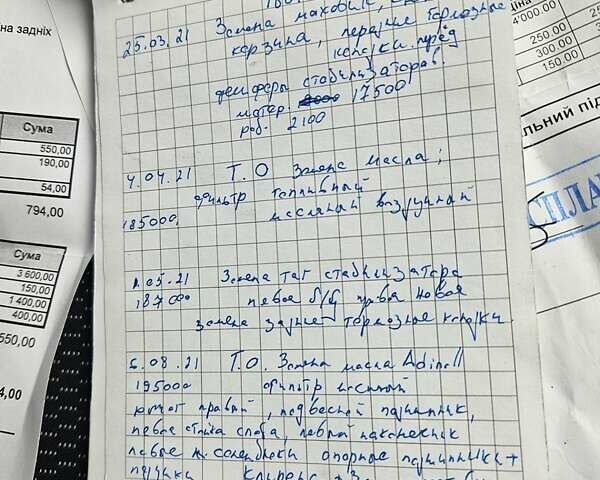 25.03.21 Замена маховик,
корзина, передние тормозные
колодки. перед
демферы стабилизаторов.
матер. 17500
раб. 2100
4.04.21 Т.О Замена масла;
Фильтр топливный
185000, масляный воздушный
1.05.21 Замена тяг стабилизатора
187000 левое б/у права новая
замена задние тормозные колодки
6.08.21 Т.О. Замена масла Adinoll
195000 фильтр масляный
правый, подвесной подшипник,
левая стойка стаба, левый наконечник
левые опорные подшипники +
на задніх
Сума
550,00
190,00
54,00
794,00
Сума
3 600,00
150,00
1 400,00
400,00
550,00
4,00
4'000.00
250.00
300.00
150.00
льний під
СПЛА